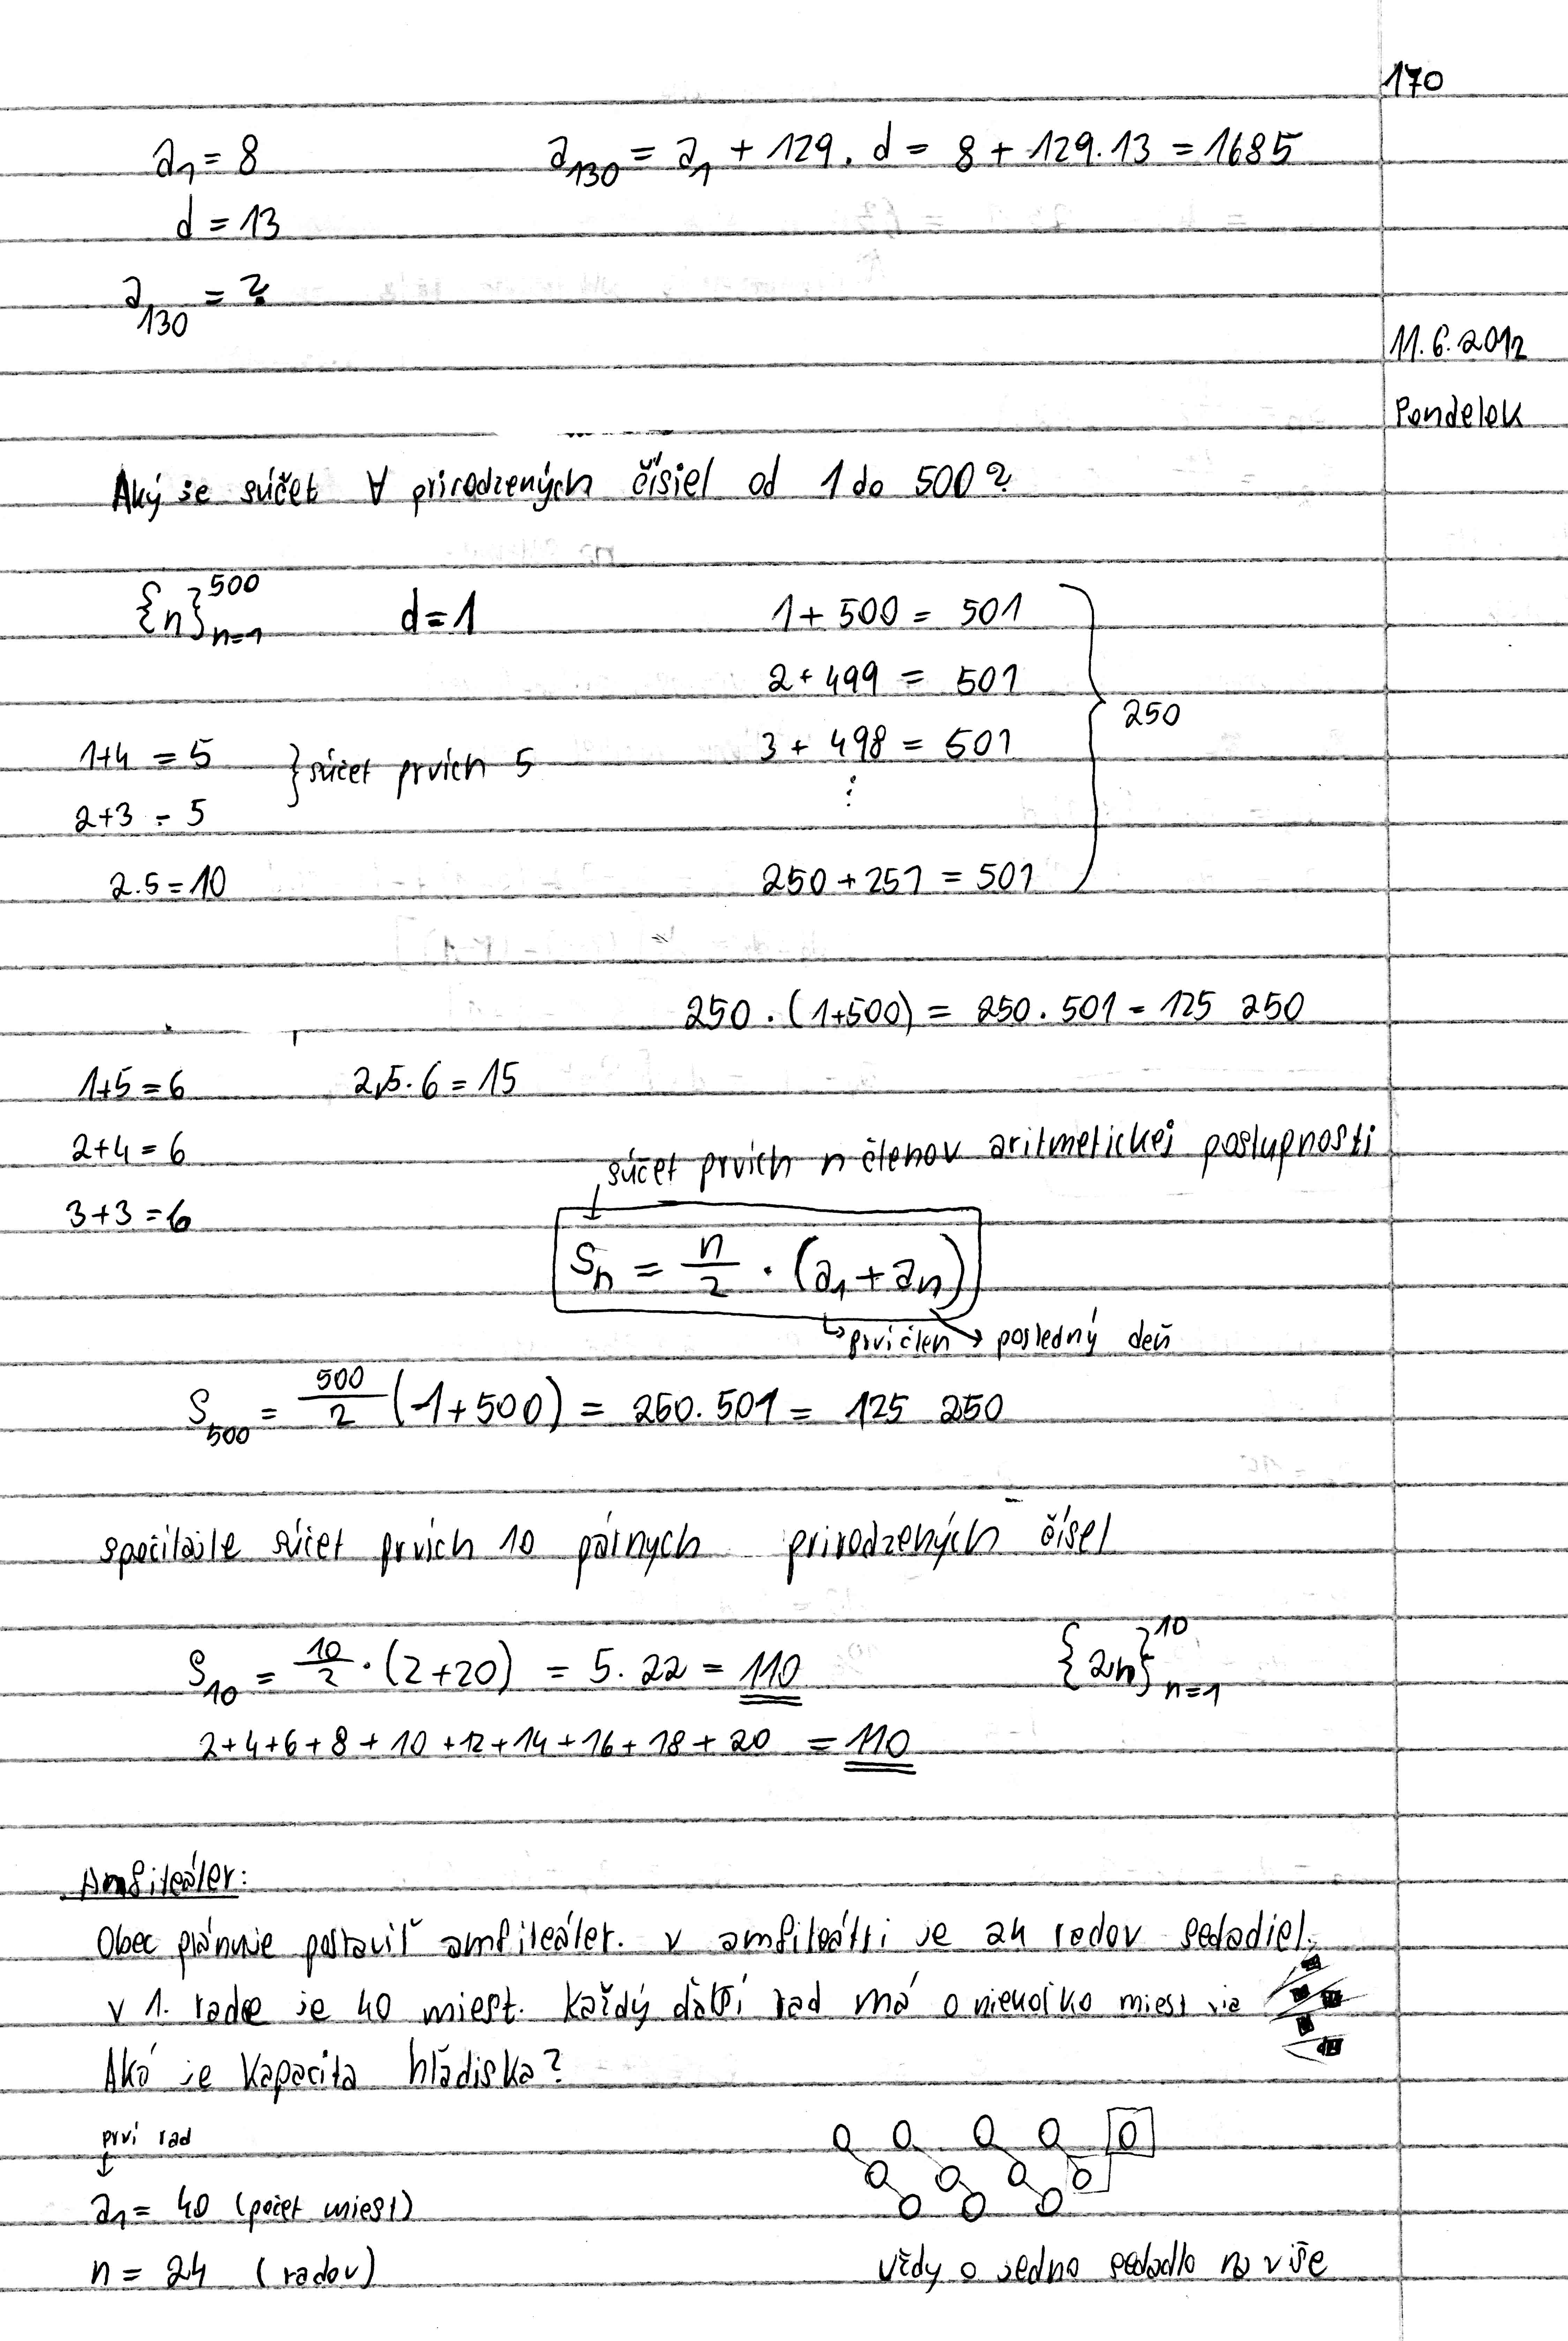 170
a₁ = 8
a₁₃₀ = a₁ + 129 . d = 8 + 129.13 = 1685
d = 13
a₁₃₀ = ?
11.6.2012
Pondelok
Aký je súčet ∀ prirodzených čísiel od 1 do 500?
{n}⁵⁰⁰ₙ₌₁
d=1
1 + 500 = 501
2 + 499 = 501
250
3 + 498 = 501
⋮
250 + 251 = 501
1+4 = 5
} súčet prvích 5
2+3 = 5
2.5=10
250 . (1+500) = 250.501 = 125 250
1+5=6
2,5.6=15
2+4=6
3+3=6
súčet prvích n členov aritmetickej postupnosti
Sₙ = n/2 . (a₁ + aₙ)
prví člen
posledný
S₅₀₀ = 500/2 (1+500) = 250.501 = 125 250
spočítajte súčet prvích 10 párnych prirodzených čísel
S₁₀ = 10/2 . (2+20) = 5.22 = 110
{2n}¹⁰ₙ₌₁
2+4+6+8+10+12+14+16+18+20 = 110
Amfiteáter:
Obec plánuje postaviť amfiteáter. v amfiteátri je 24 radov sedadiel.
v 1. rade je 40 miest. každý ďalší rad má o niekoľko miest via
Aká je kapacita hľadiska?
prví rad
a₁ = 40 (počet miest)
n = 24 (radov)
vždy o jedno sedadlo na više